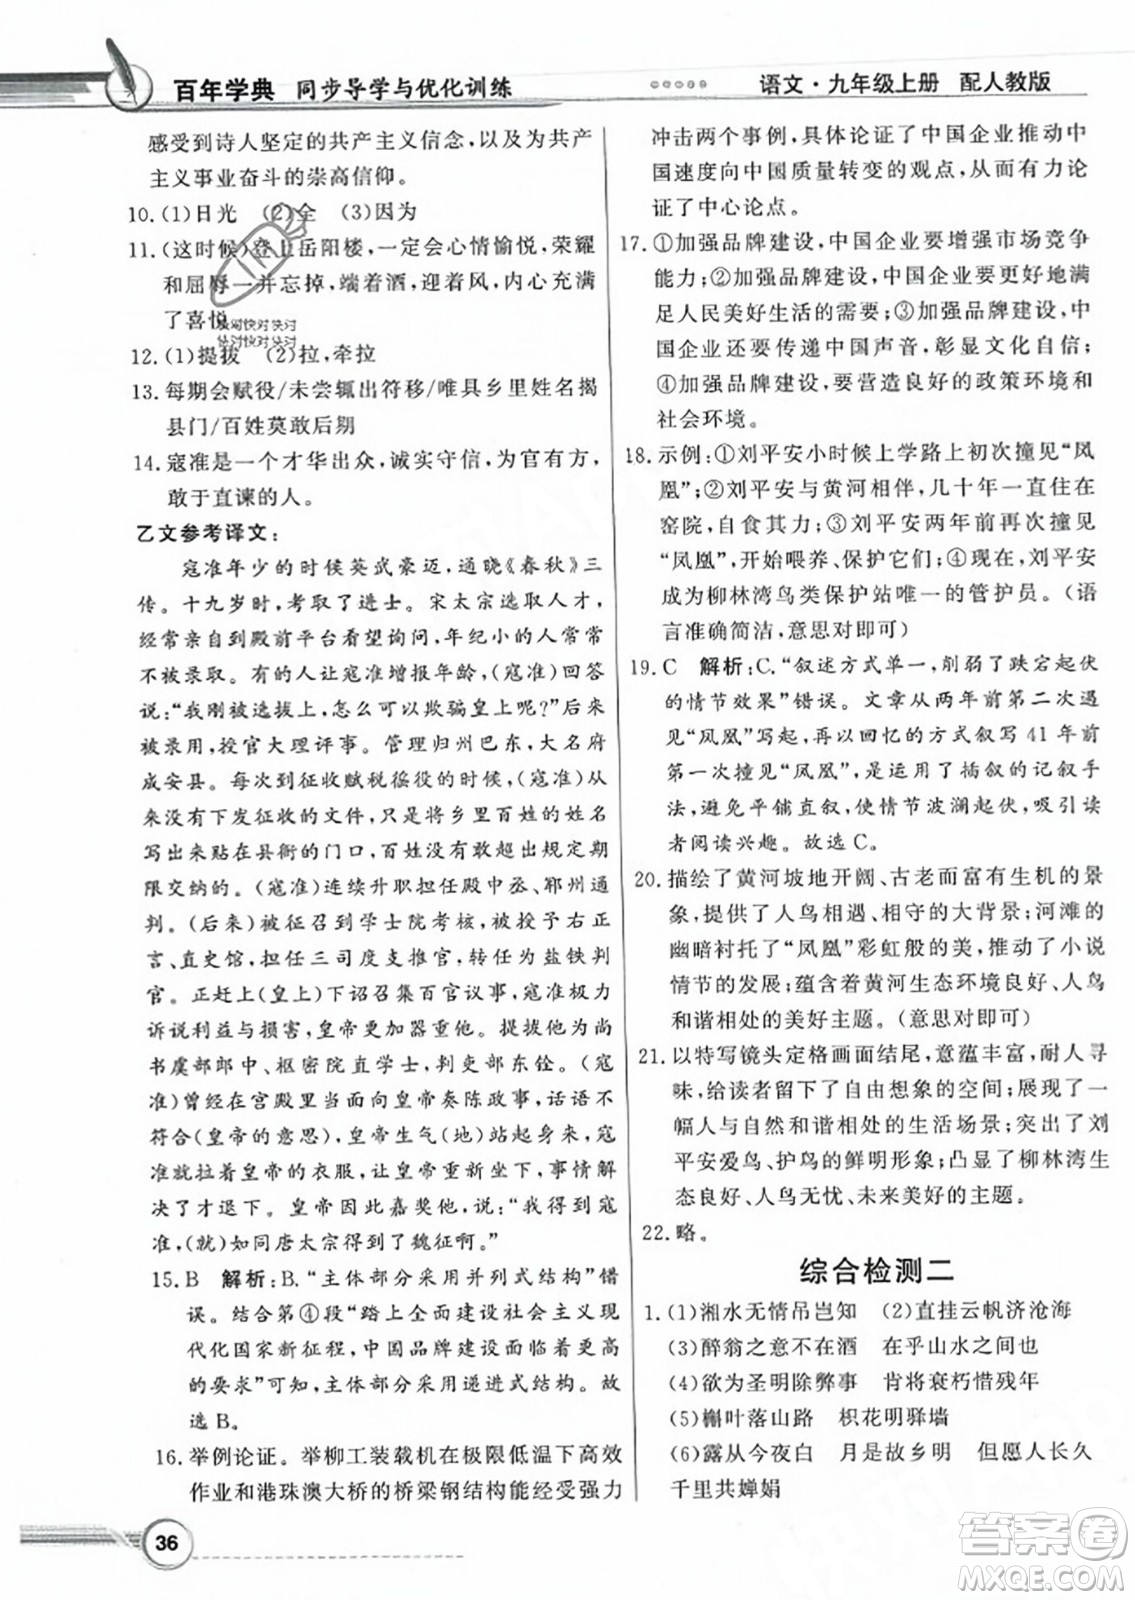 百年学典 同步导学与优化训练
语文·九年级上册 配人教版
感受到诗人坚定的共产主义信念，以及为共产
主义事业奋斗的崇高信仰。
10. (1)日光 (2)全 (3)因为
11. (这时候)登上岳阳楼，一定会心情愉悦，荣耀
和屈辱一并忘掉，端着酒，迎着风，内心充满
了喜悦
12. (1)提拔 (2)拉，牵拉
13. 每期会赋役/未尝辄出符移/唯具乡里姓名揭
县门/百姓莫敢后期
14. 寇准是一个才华出众，诚实守信，为官有方，
敢于直谏的人。
乙文参考译文：
寇准年少的时候英武豪迈，通晓《春秋》三
传。十九岁时，考取了进士。宋太宗选取人才，
经常亲自到殿前平台看望询问，年纪小的人常常
不被录用。有的人让寇准增报年龄，(寇准)回答
说：“我刚被选拔上，怎么可以欺骗皇上呢?”后来
被录用，授官大理评事。管理归州巴东，大名府
成安县。每次到征收赋税徭役的时候，(寇准)从
来没有下发征收的文件，只是将乡里百姓的姓名
写出来贴在县衙的门口，百姓没有敢超出规定期
限交纳的。(寇准)连续升职担任殿中丞、郓州通
判。(后来)被征召到学士院考核，被授予右正
言、直史馆，担任三司度支推官，又任职为盐铁判
官。正赶上(皇上)下诏召集百官议事，寇准极力
诉说利益与损害，皇帝更加器重他。提拔他为尚
书虞部郎中、枢密院直学士，判吏部东铨。(寇
准)曾经在宫殿里当面向皇帝奏陈政事，话语不
符合(皇帝的意思)，皇帝生气(地)站了起来，寇
准就拉着皇帝的衣服，让皇帝重新坐下，事情解
决了才退下。皇帝因此嘉奖他，说：“我得到寇
准，(就)如同唐太宗得到了魏征啊。”
15. B 解析：B.“主体部分采用并列式结构”错
误。结合第④段“踏上全面建设社会主义现
代化国家新征程，中国品牌建设仍需满足更高
的要求”可知，主体部分采用递进式结构。故
选 B。
16. 举例论证。举柳工装载机在极限低温下高效
作业和港珠澳大桥的桥梁钢结构能经受强力
36
冲击两个事例，具体论证了中国企业推动中
国速度向中国质量转变的观点，从而有力论
证了中心论点。
17. ①加强品牌建设，中国企业要增强市场竞争
能力；②加强品牌建设，中国企业还要满
足人民美好生活的需要；③加强品牌建设，中
国企业还要传达中国声音，彰显文化自信；
④加强品牌建设，要营造良好的政策环境和
社会环境。
18. 示例：①刘平安小时候上学路上初次撞见“凤
凰”；②刘平安与黄河相伴，几十年一直住在
窑院，自食其力；③刘平安两年前再次撞见
“凤凰”，开始喂养、保护它们；④现在，刘平安
成为柳林湾鸟类保护站唯一的管护员。(语
言准确简洁，意思对即可)
19. C 解析：C.“叙述方式单一，削弱了跌宕起伏
的情节效果”错误。文章从两年前第二次遇
见“凤凰”写起，再以回忆的方式叙写 41 年前
第一次撞见“凤凰”，运用了插叙的记叙手
法，避免平铺直叙，使情节波澜起伏，吸引读
者阅读兴趣。故选 C。
20. 描绘了黄河坡地开阔、古老而富有生机的景
象，提供了人鸟相遇、相守的大背景；河滩的
幽暗衬托了“凤凰”彩虹般的美，推动了小说
情节的发展；蕴含着黄河生态环境良好、人鸟
和谐相处的美好主题。(意思对即可)
21. 以特写镜头定格画面结尾，意蕴丰富，耐人寻
味，给读者留下了自由想象的空间；展现了一
幅人与自然和谐相处的生活场景；突出了刘
平安爱鸟、护鸟的鲜明形象；凸显了柳林湾生
态良好、人鸟无忧、未来美好的主题。
22. 略。
综合检测二
1. (1)湘水无情吊岂知 (2)直挂云帆济沧海
(3)醉翁之意不在酒 在乎山水之间也
(4)欲为圣明除弊事 肯将衰朽惜残年
(5)槲叶落山路 枳花明驿墙
(6)露从今夜白 月是故乡明 但愿人长久
千里共婵娟
答案圈
MXQE.COM